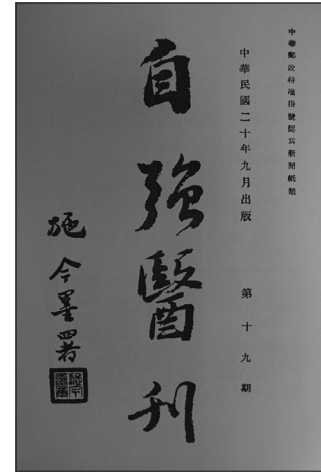 中華郵政特准掛號認爲新聞紙類
中華民國二十年九月出版
第十九期
自强醫刊
施今墨署